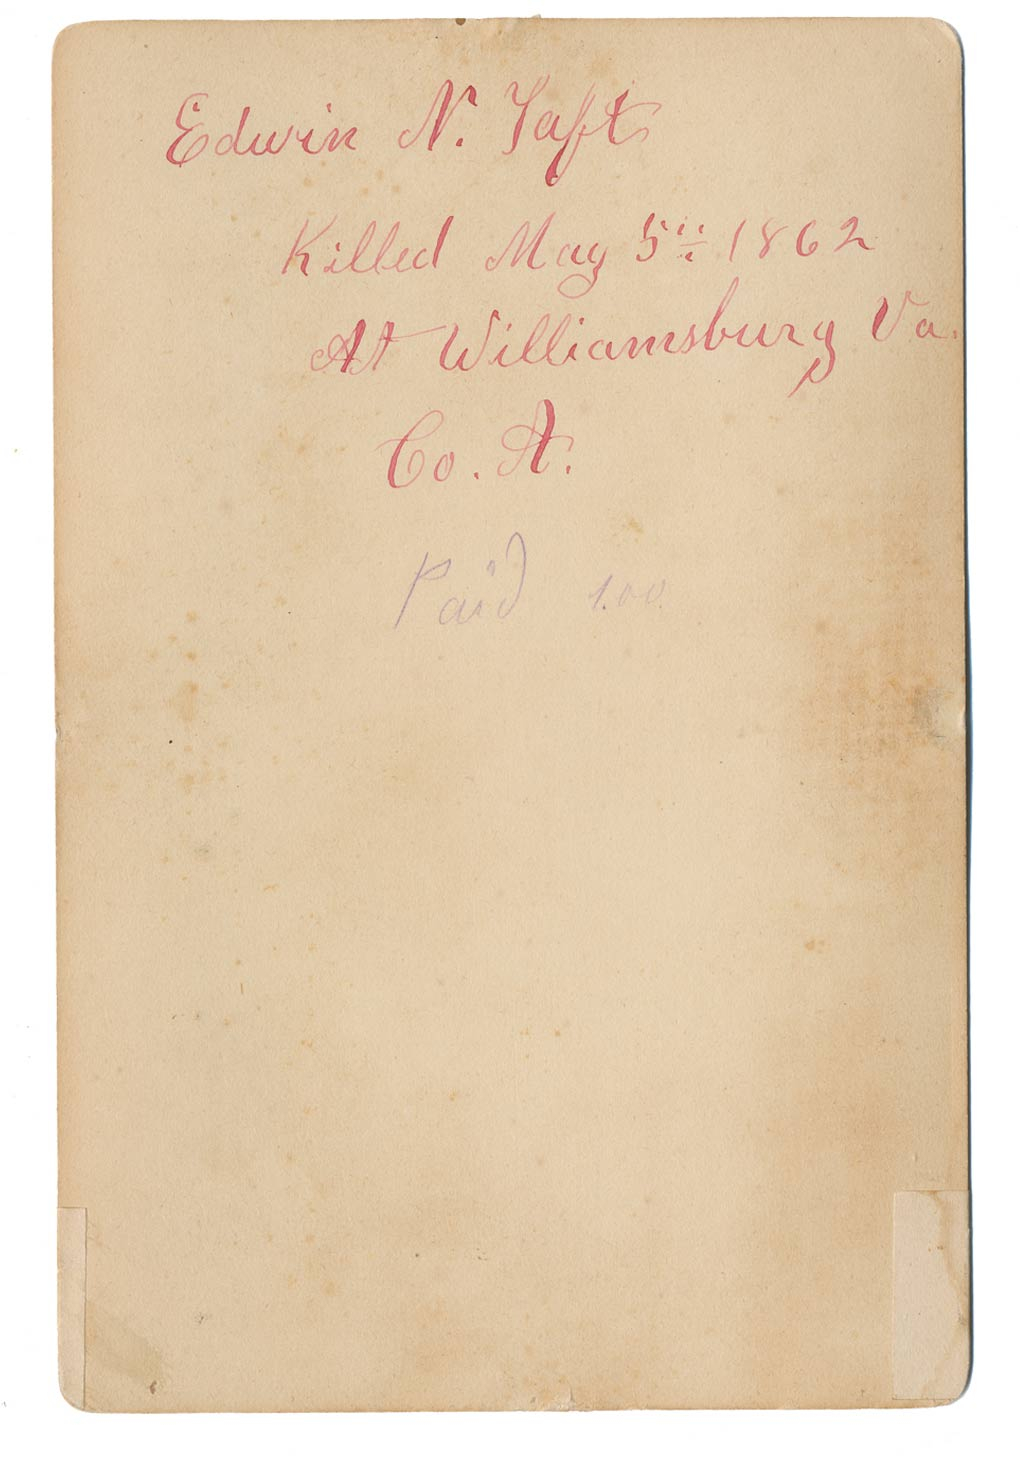 Edwin N. Taft
Killed May 5" 1862
At Williamsburg Va.
Co. A.
Paid 1.00